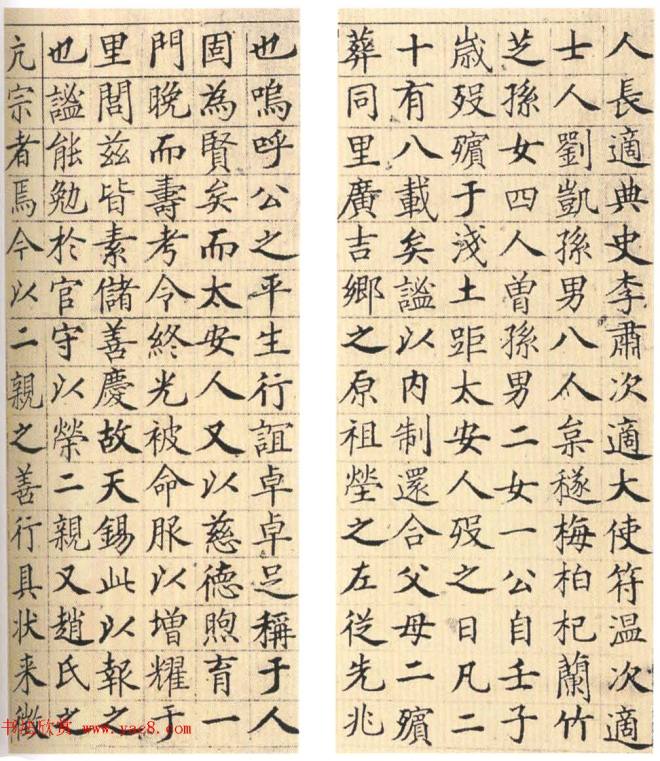 人長適典史李肅次適大使符温次適
士人劉凱孫男八人杲穟梅柏杞蘭竹
芝孫女四人曽孫男二女一公自壬子
歳歿殯于淺土距太安人歿之日凡二
十有八載矣謐以内制還合父母二殯
葬同里廣吉鄉之原祖塋之左從先兆
也嗚呼公之平生行誼卓卓足稱于人
固為賢矣而太安人又以慈德煦育一
門晚而壽考令終光被命服以增耀于
里閭茲皆素儲善慶故天錫此以報之
也謐能勉於官守以榮二親又趙氏之
亢宗者焉今以二親之善行具状来徵
书法欣赏 www.yac8.com